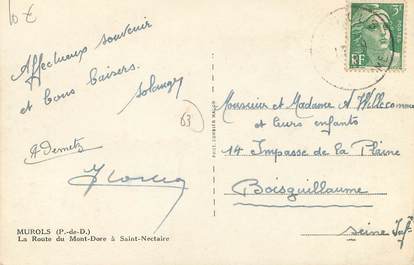 10 €
Affectueux souvenir
et bons baisers.
Solange
63
G Demetz
MUROLS (P.-de-D.)
La Route du Mont-Dore à Saint-Nectaire
3F
POSTES
RF
Monsieur et Madame A
et leurs enfants
14 Impasse de la Plaine
Boisguillaume
Seine Inf